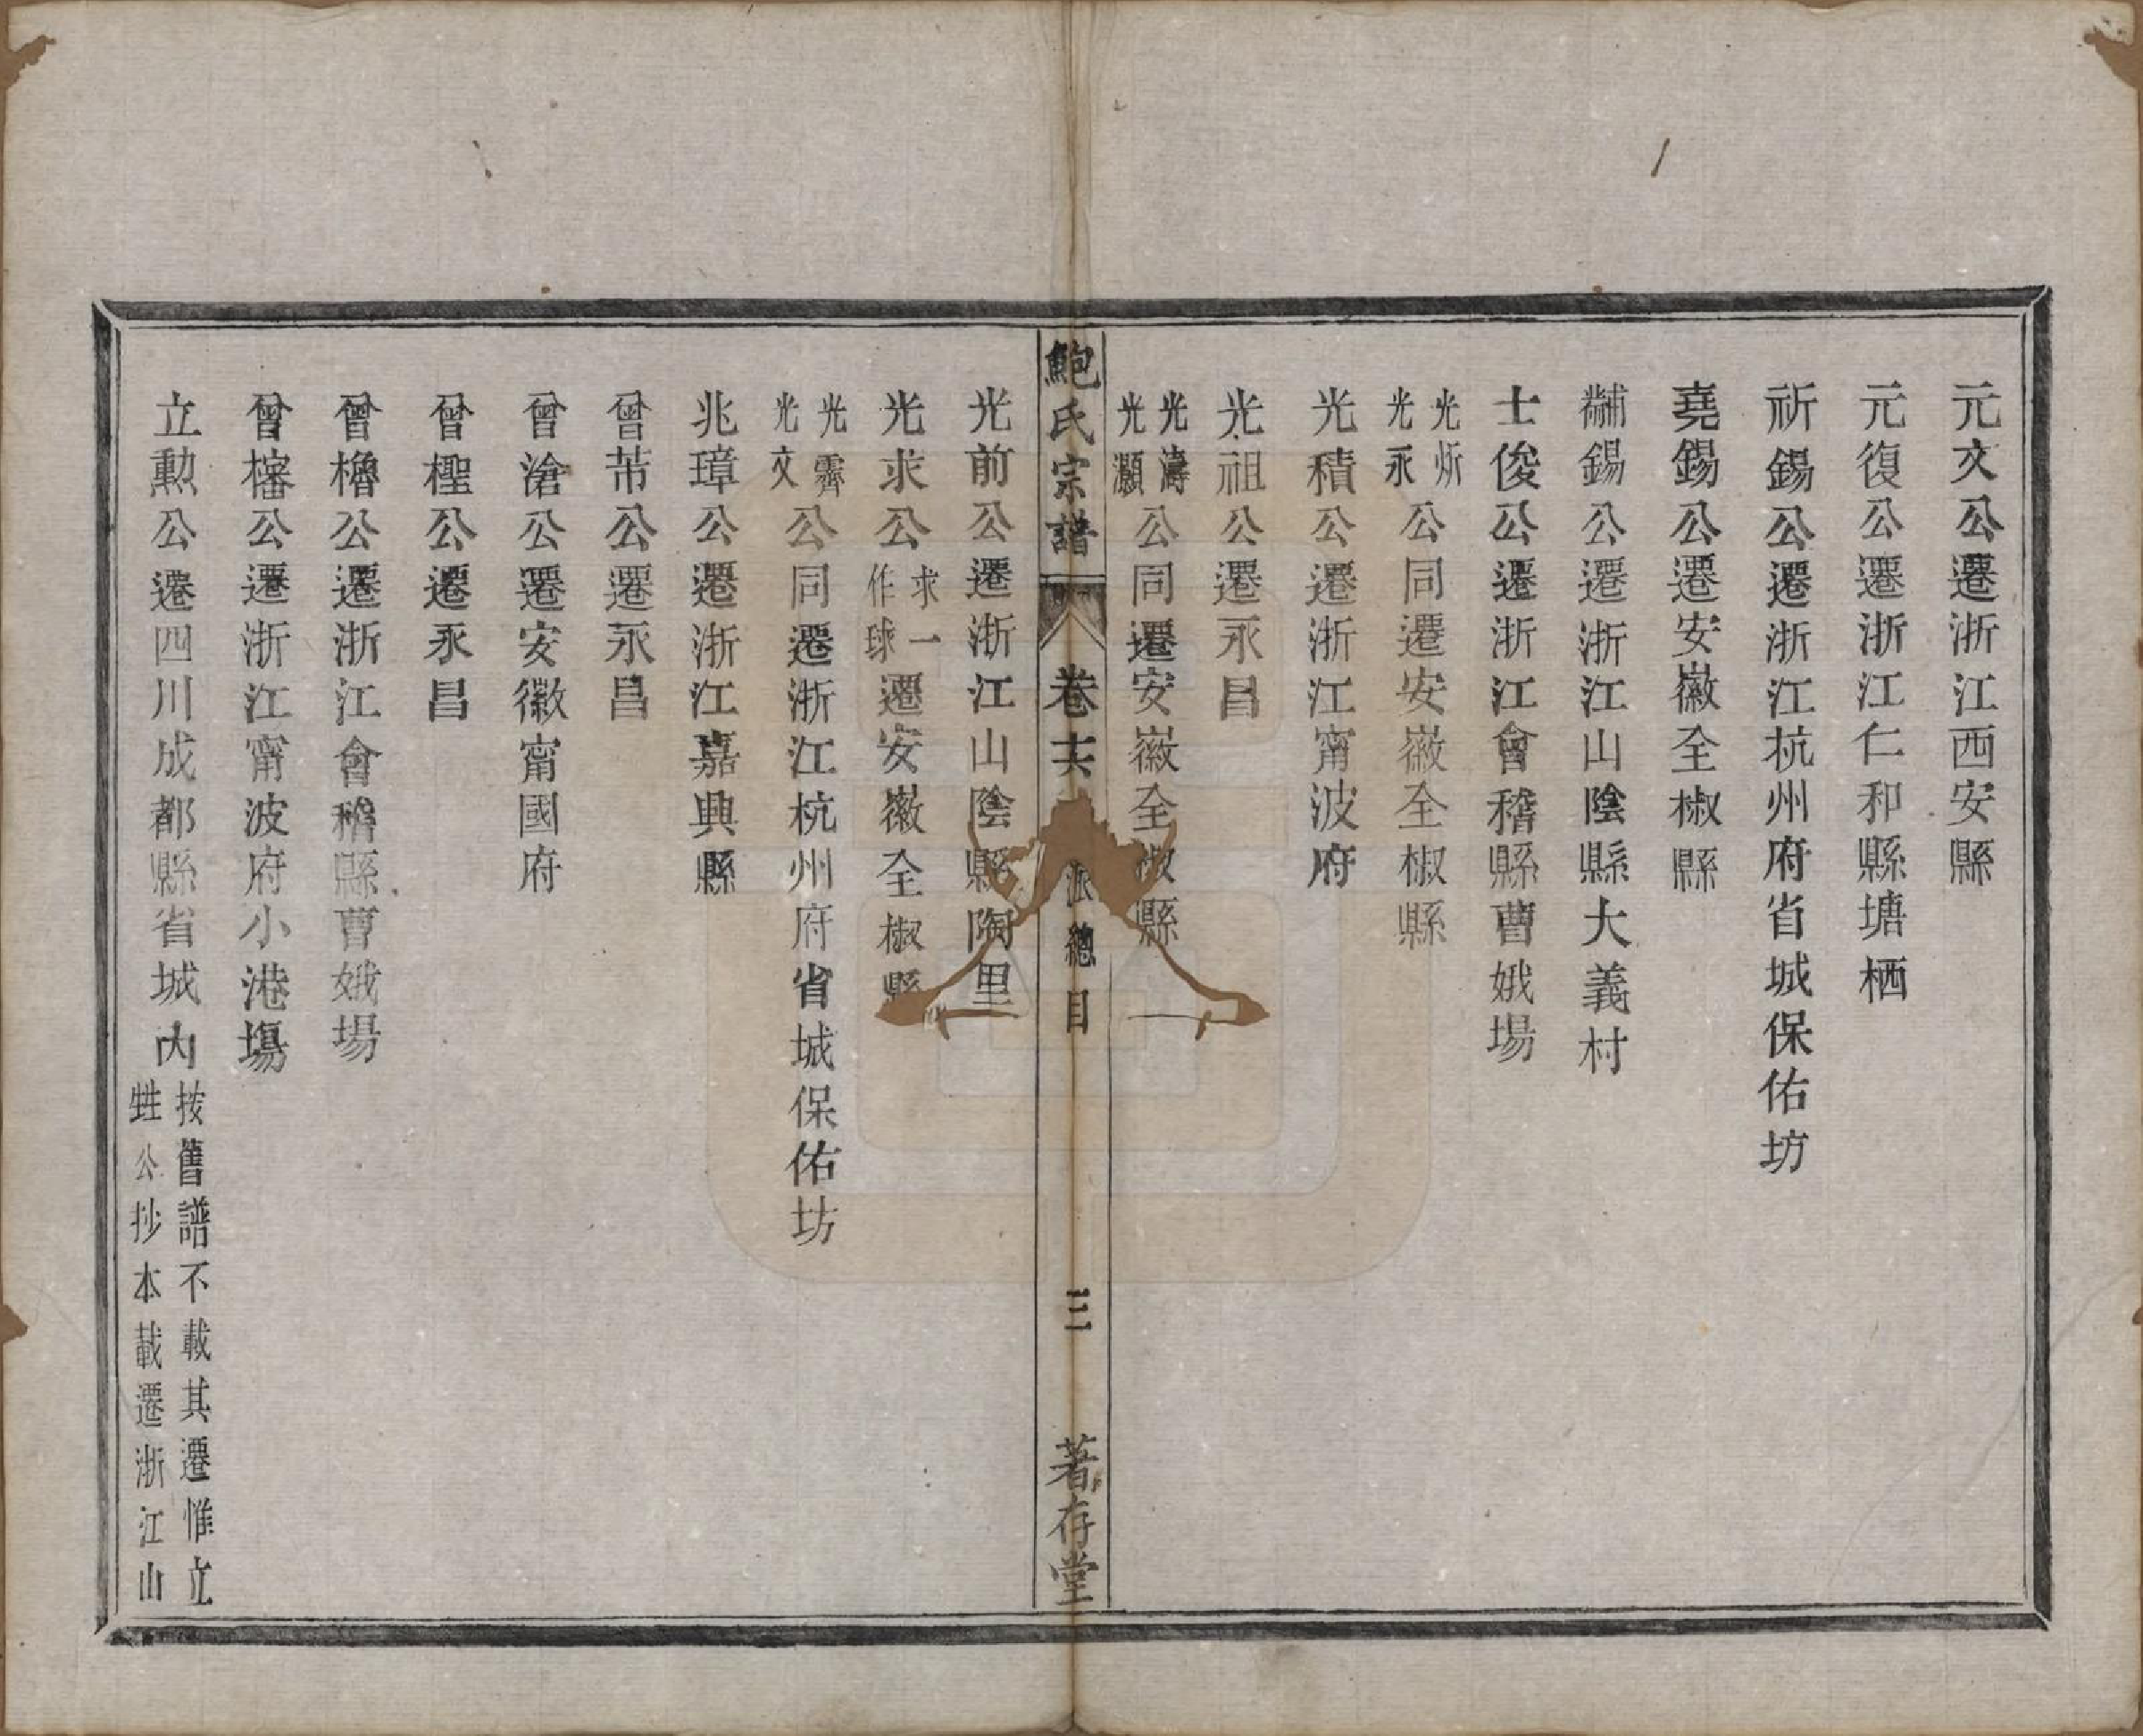 元文公遷浙江西安縣
元復公遷浙江仁和縣塘栖
祈錫公遷浙江杭州府省城保佑坊
堯錫公遷安徽全椒縣
黼錫公遷浙江山陰縣大義村
士俊公遷浙江會稽縣曹娥場
光炘光永公同遷安徽全椒縣
光積公遷浙江甯波府
光祖公遷永昌
光濤光灝公同遷安徽全椒縣
鮑氏宗譜 卷十六 派總目 三 著存堂
光前公遷浙江山陰縣陶里
光求公求一作球遷安徽全椒縣
光霽光文公同遷浙江杭州府省城保佑坊
兆璋公遷浙江嘉興縣
曾芾公遷永昌
曾滄公遷安徽甯國府
曾檉公遷永昌
曾櫓公遷浙江會稽縣曹娥場
曾㯆公遷浙江甯波府小港塲
立勲公遷四川成都縣省城內按舊譜不載其遷惟立甡公抄本載遷浙江山